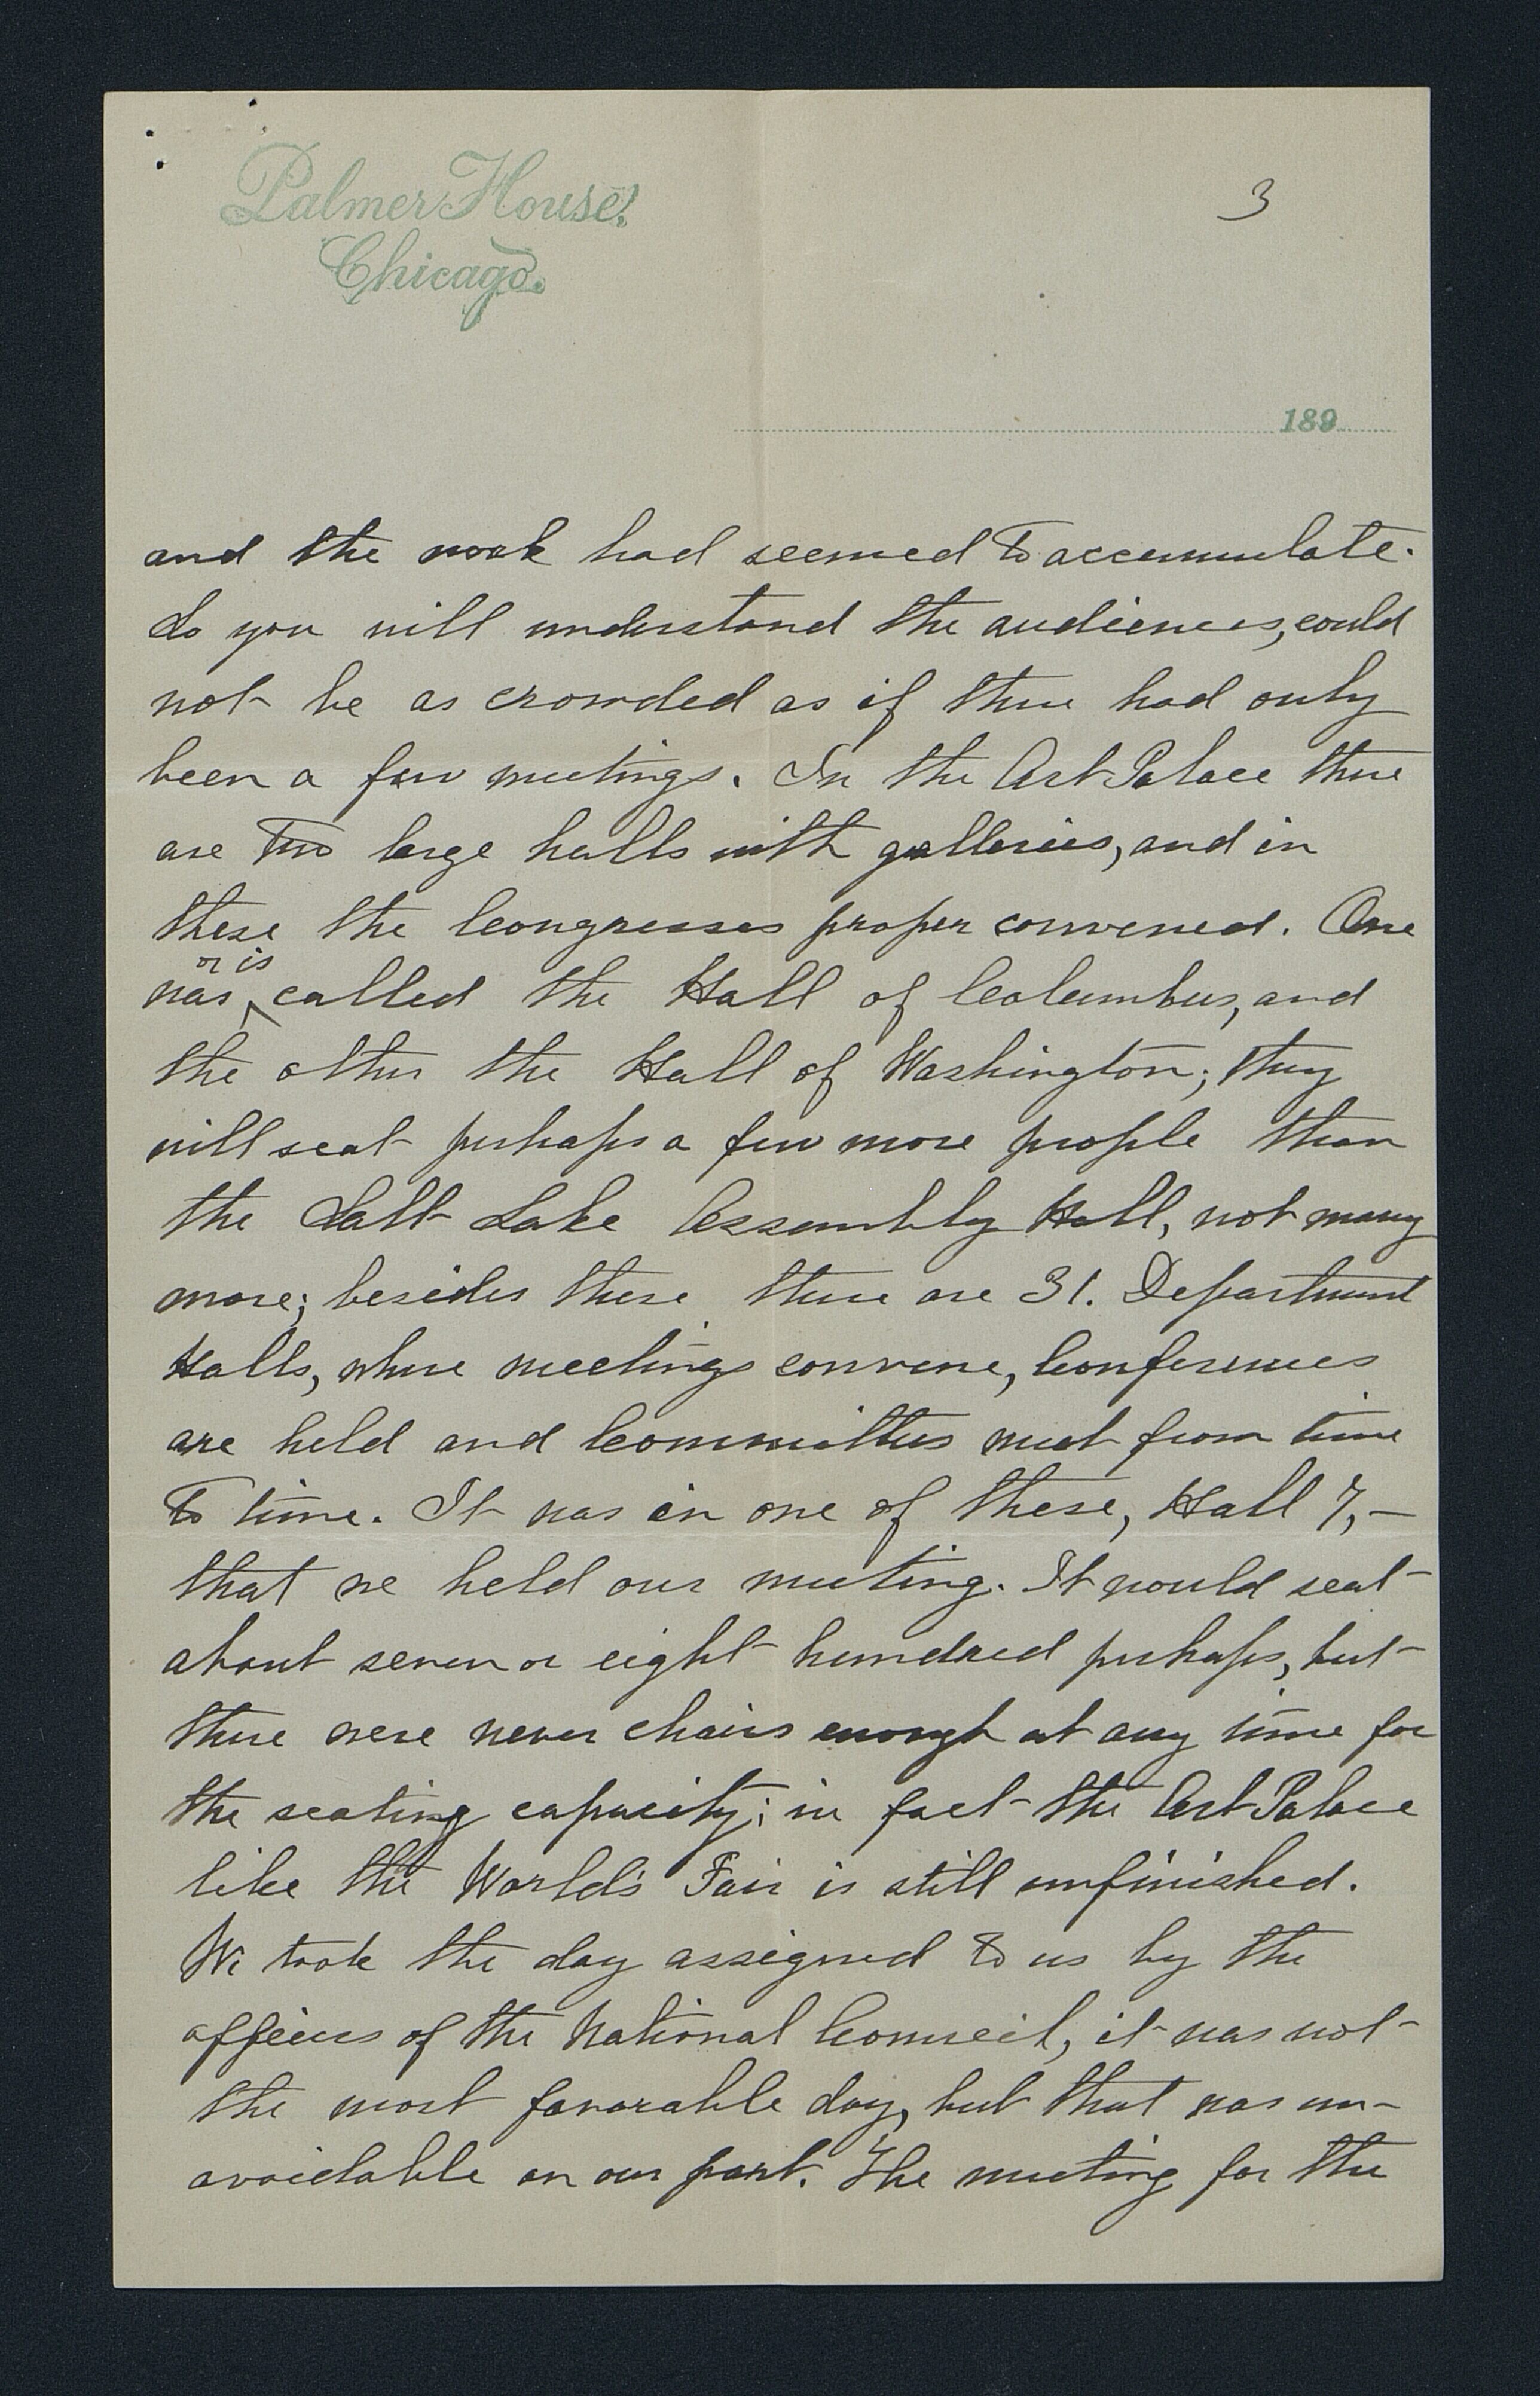 Palmer House,
Chicago.
3
189
and the work had seemed to accumulate.
So you will understand the audiences, could
not be as crowded as if there had only
been a few meetings. In the Art Palace there
are two large halls with galleries, and in
these the Congresses proper convened. One
or is
was ^ called the Hall of Columbus, and
the other the Hall of Washington; they
will seat perhaps a few more people than
the Salt Lake Assembly Hall, not many
more; besides these there are 31. Department
Halls, where meetings convene, Conferences
are held and Committees meet from time
to time. It was in one of these, Hall 7,—
that we held our meeting. It would seat
about seven or eight hundred perhaps, but
there were never chairs enough at any time for
the seating capacity; in fact the Art Palace
like the World's Fair is still unfinished.
We took the day assigned to us by the
officers of the National Council, it was not
the most favorable day, but that was un-
avoidable on our part. The meeting for the